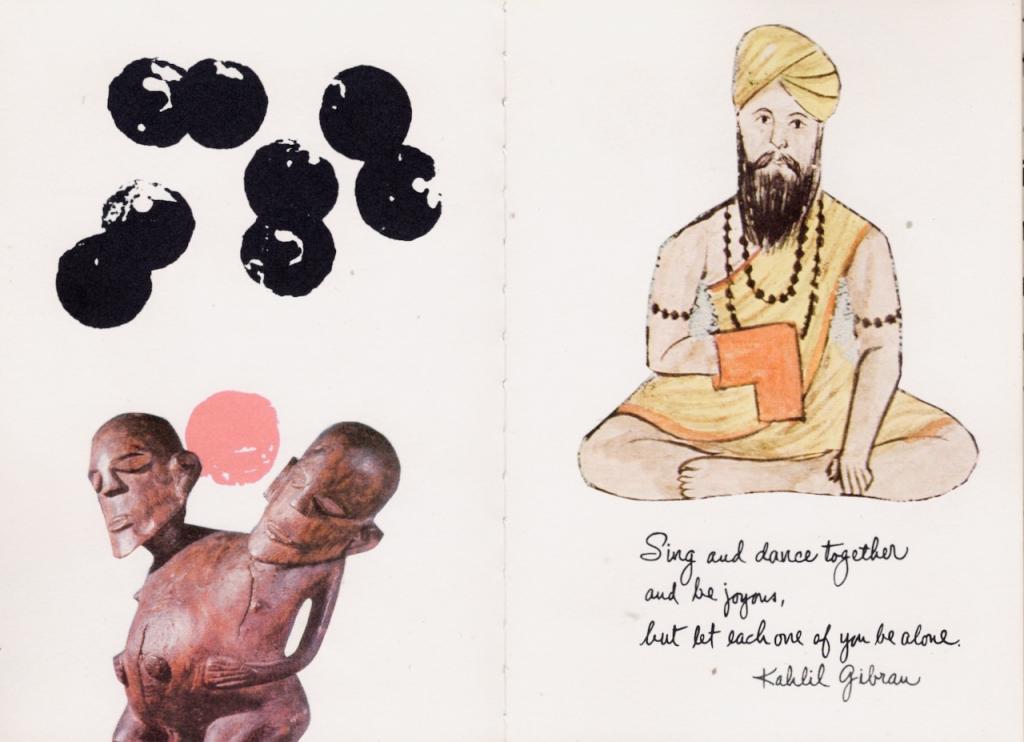 Sing and dance together
and be joyous,
but let each one of you be alone.
Kahlil Gibran